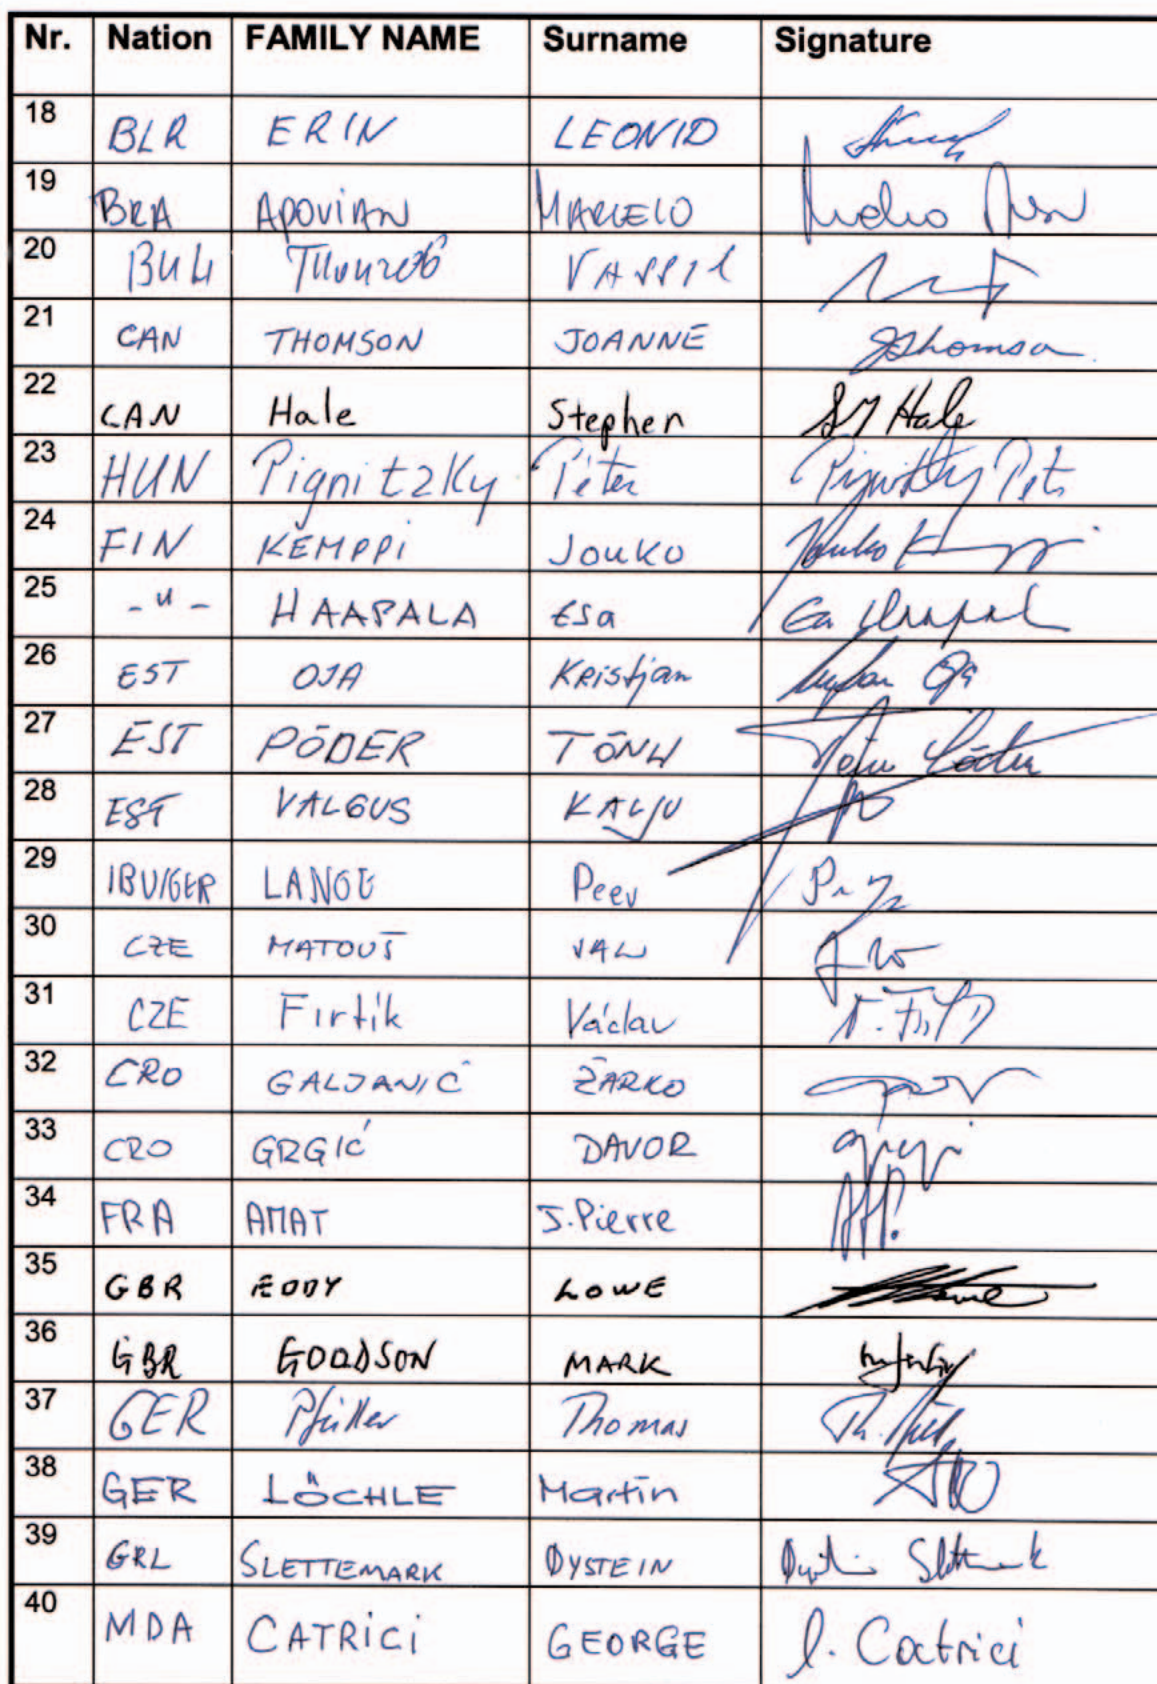 Nr. Nation FAMILY NAME Surname Signature
18 BLR ERIN LEONID
19 BRA APOVIAN MARCELO
20 BUL VASSIL
21 CAN THOMSON JOANNE JThomson
22 CAN Hale Stephen SM Hale
23 HUN Pignitzky Péter
24 FIN KEMPPI JOUKO Jouko
25 -"- HAAPALA ESA
26 EST OJA Kristjan
27 EST PÕDER TÕNU
28 EST VALGUS KALJU
29 IBU/GER LANGE Peer
30 CZE MATOUŠ JAN
31 CZE Firtík Václav
32 CRO GALJANIĆ ŽARKO
33 CRO GRGIĆ DAVOR
34 FRA AMAT J.Pierre
35 GBR EDDY LOWE
36 GBR GOODSON MARK
37 GER Pfüller Thomas
38 GER LÖCHLE Martin
39 GRL SLETTEMARK ØYSTEIN
40 MDA CATRICI GEORGE Catrici